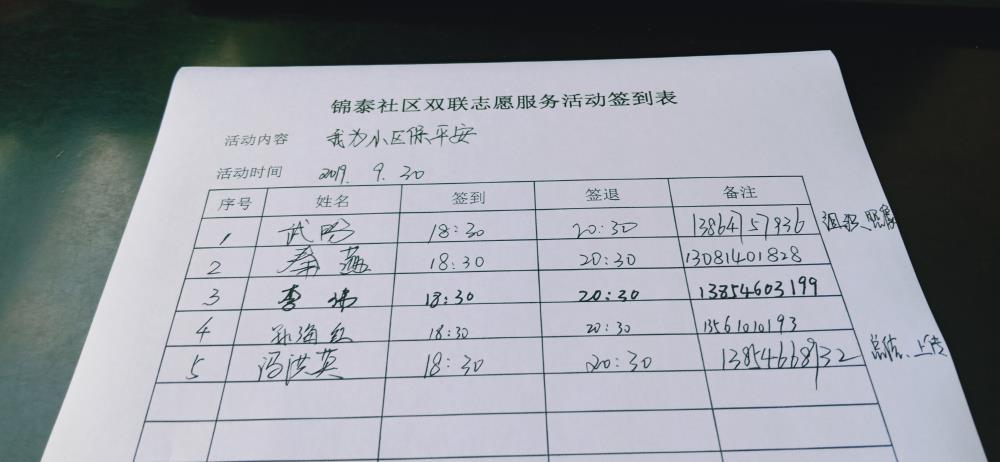 锦泰社区双联志愿服务活动签到表
活动内容 我为小区保平安
活动时间 2019. 9. 30
序号 姓名 签到 签退 备注
1 武 18:30 20:30 13864757936 组织、照像
2 秦燕 18:30 20:30 13081401828
3 李伟 18:30 20:30 13854603199
4 孙海红 18:30 20:30 13561010193
5 冯洪英 18:30 20:30 13854668932 总结、上传